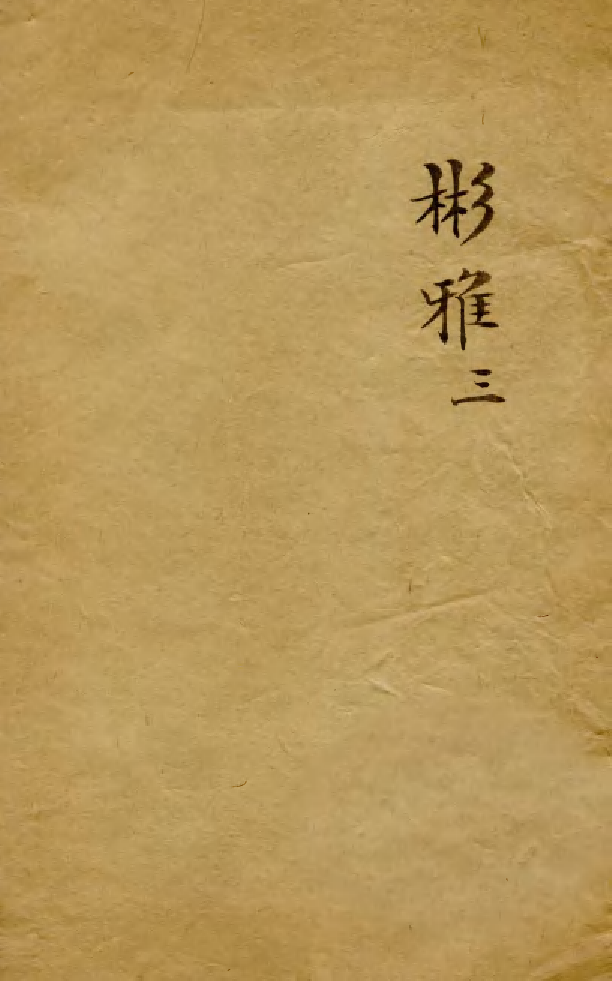 彬雅三